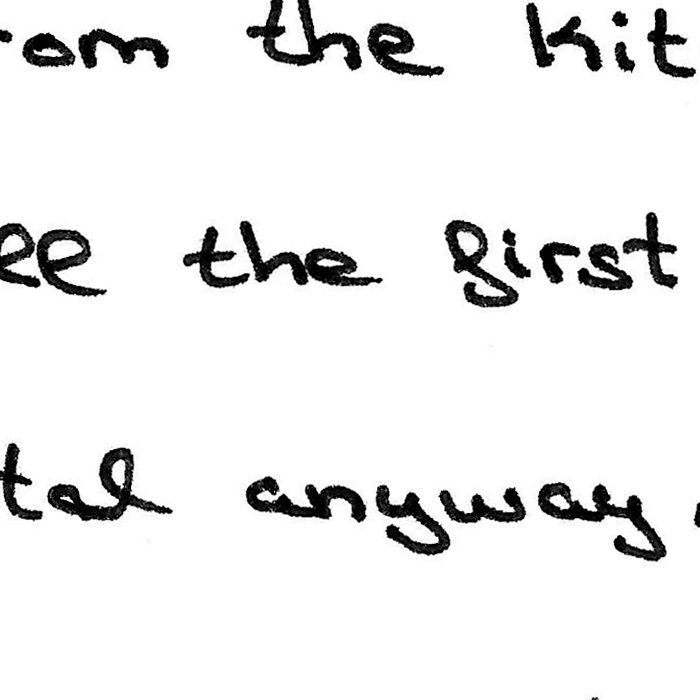 rom the kit
ee the first
tal anyway